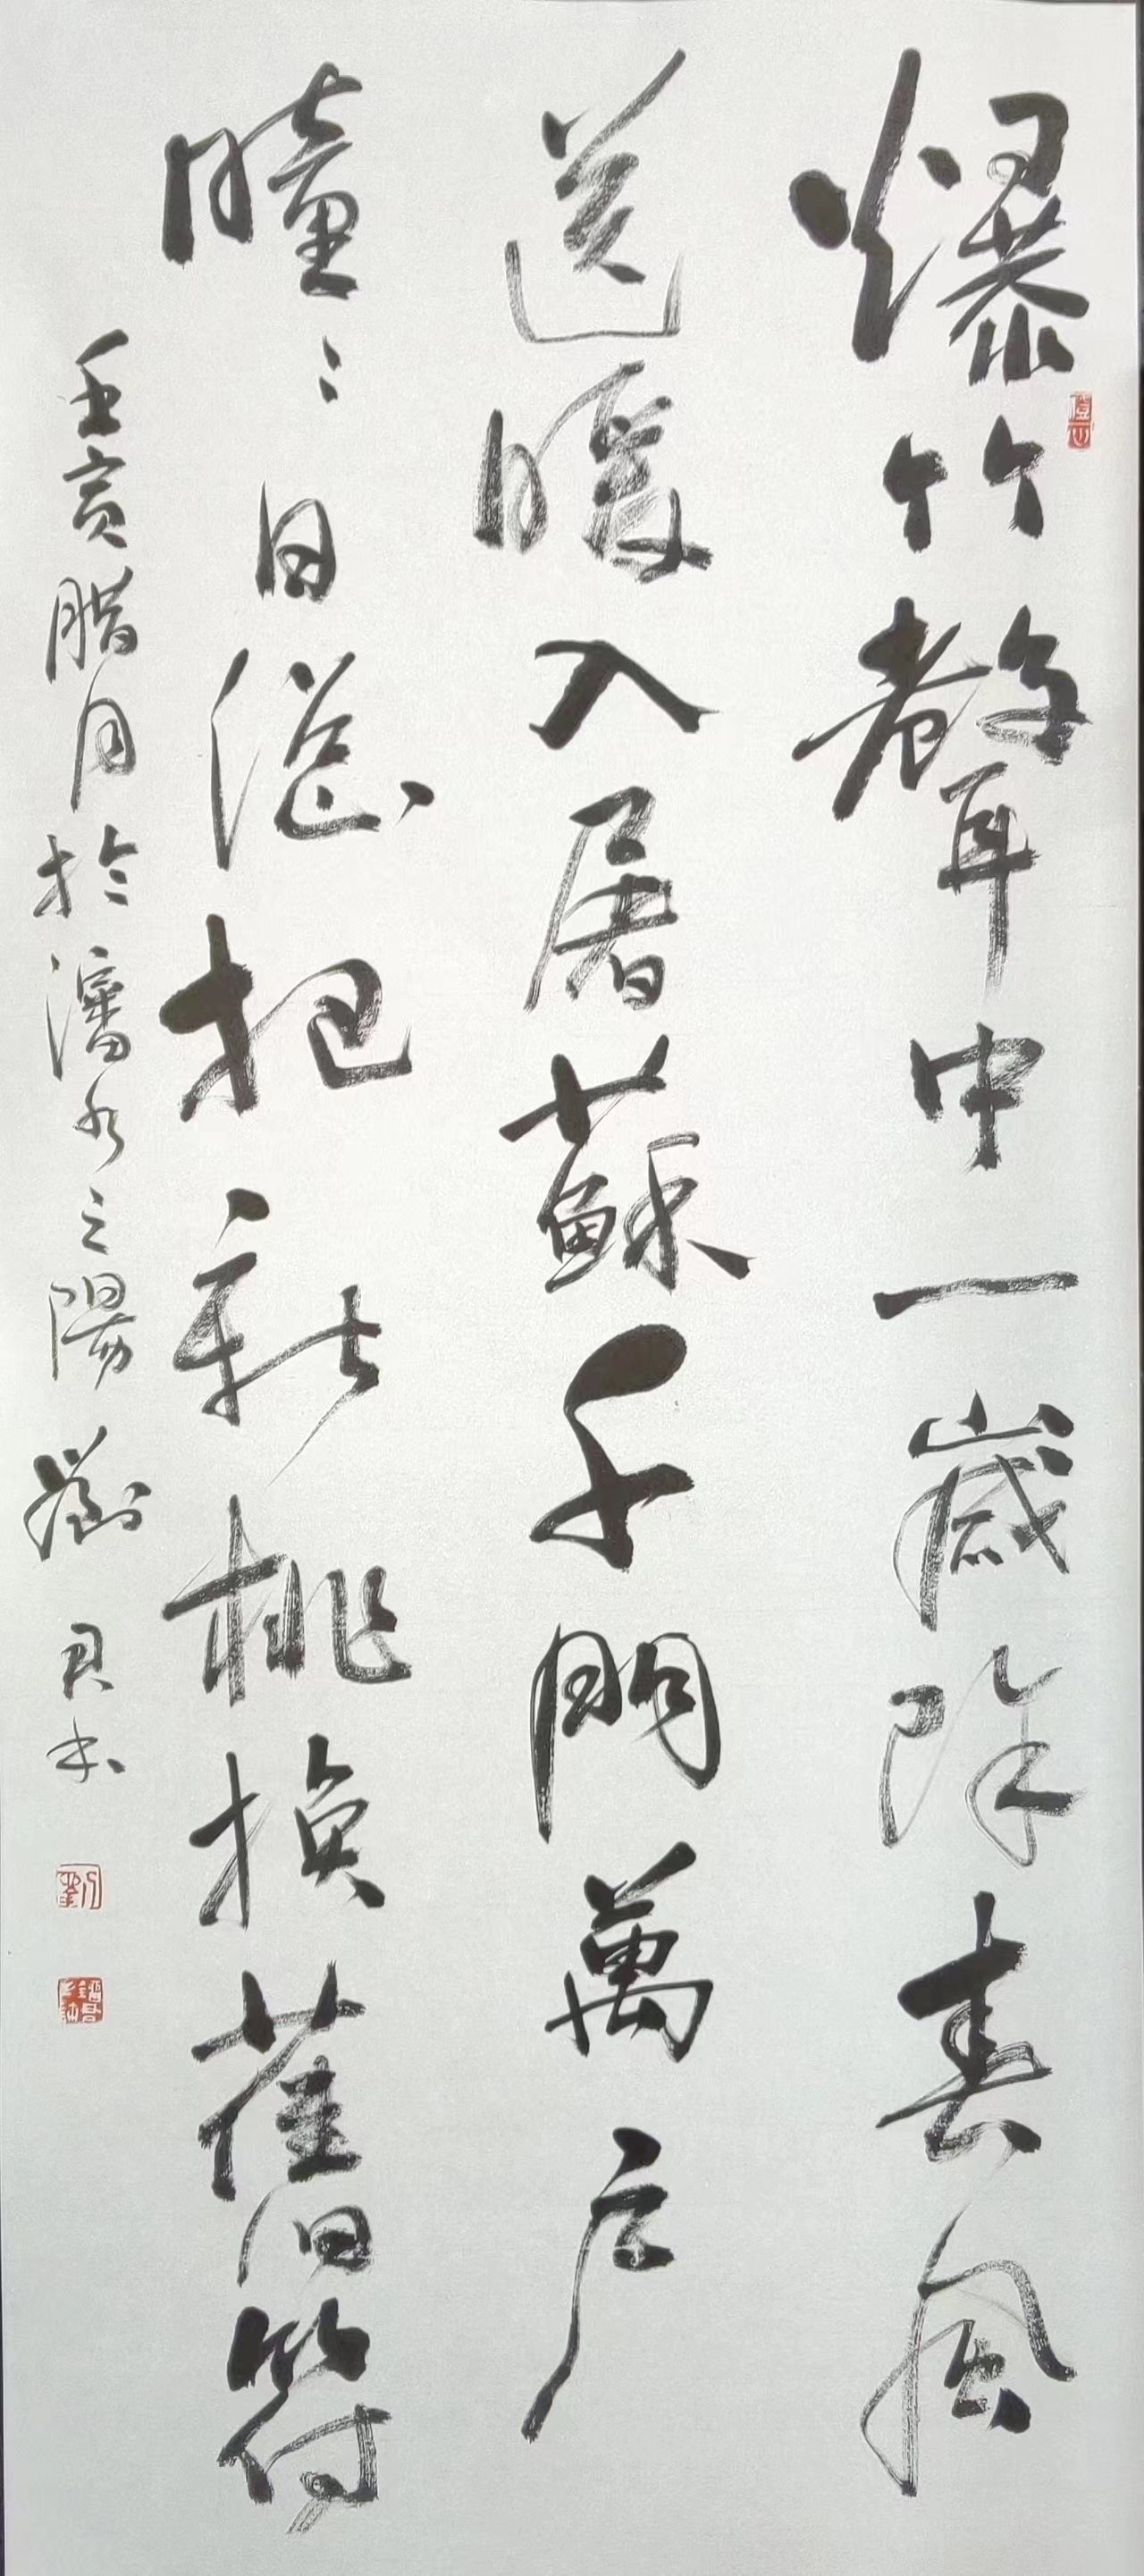 爆竹聲中一歲除春風
送暖入屠蘇千門萬戶
曈〻日總把新桃換舊符
壬寅腊月於瀋水之陽劉君书